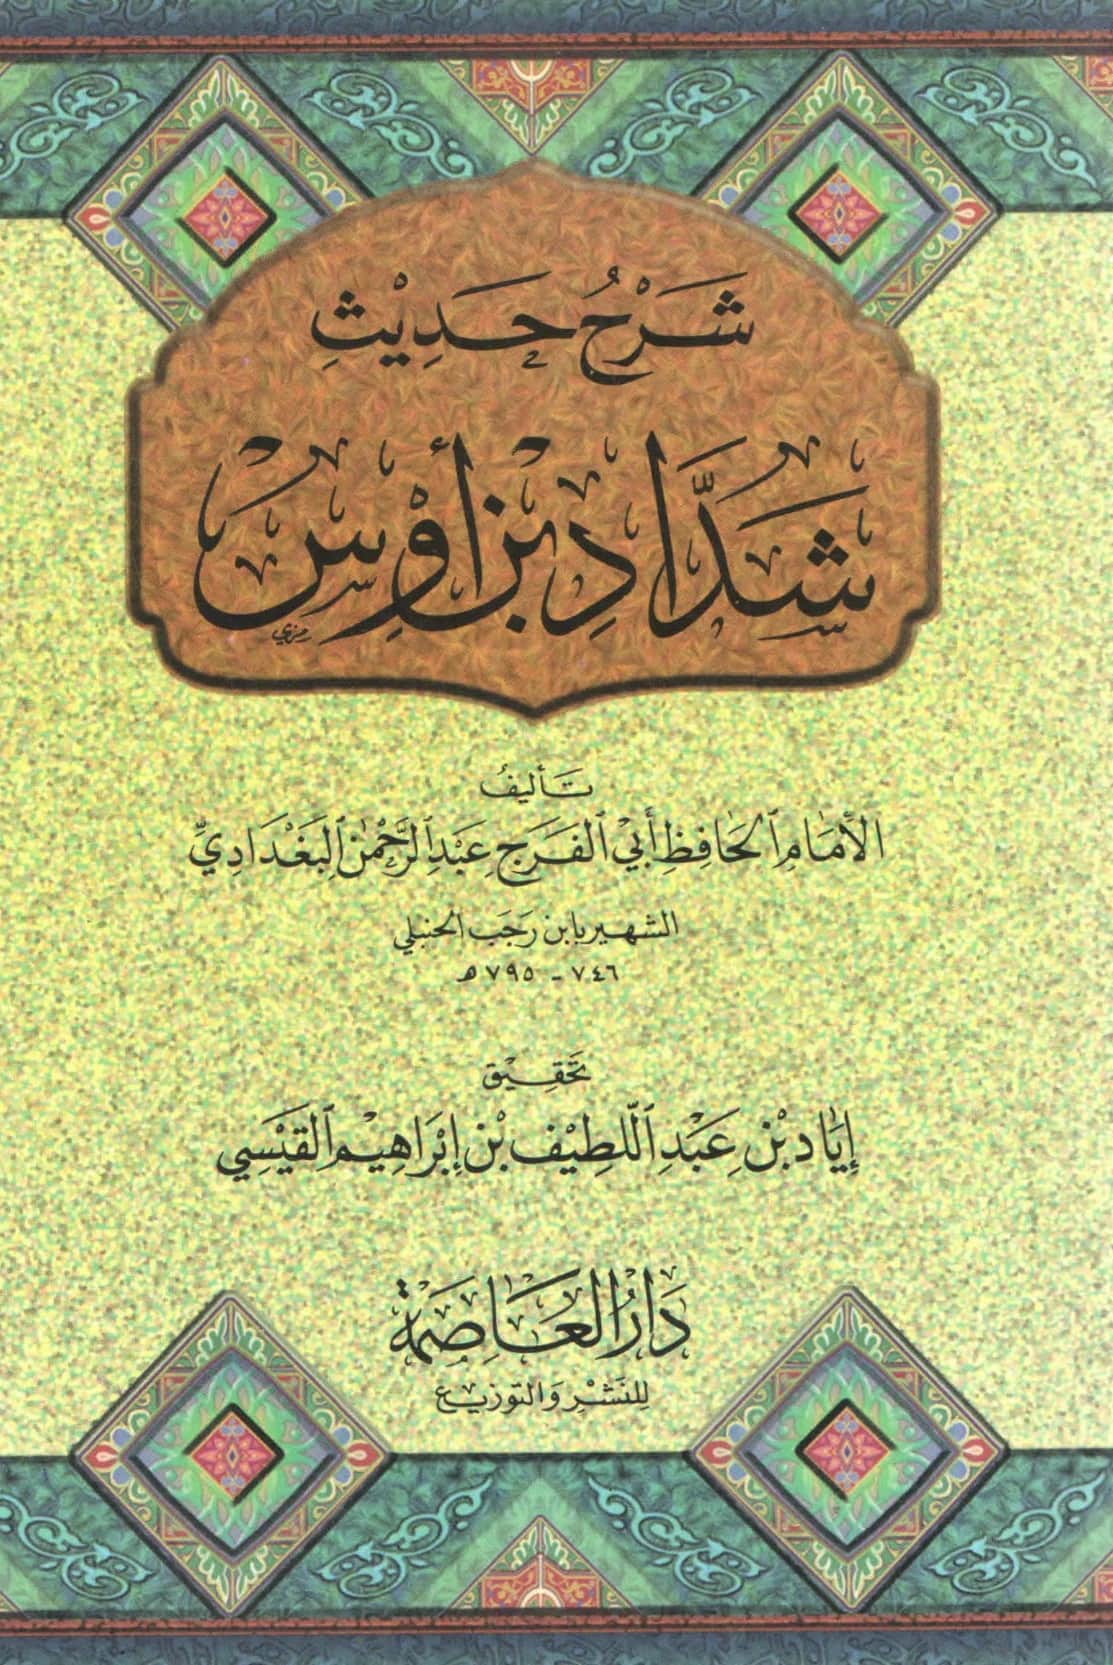 شَرْحُ حَدِيْثِ
شَدَّادِ بْنِ أَوْسٍ
تَأليفُ
الإِمَامِ الحَافِظِ أَبِيْ الفَرَجِ عَبْدِ الرَّحْمٰنِ البَغْدَادِيِّ
الشهير بابن رَجَب الحنبلي
٧٤٦ - ٧٩٥ هـ
تَحَقِيْق
إِيَاد بْنِ عَبْدِ اللَّطِيْف بْن إِبْرَاهِيْم القَيْسِي
دَارُ العَاصِمَة
لِلنَشْرِ وَالتوزيع